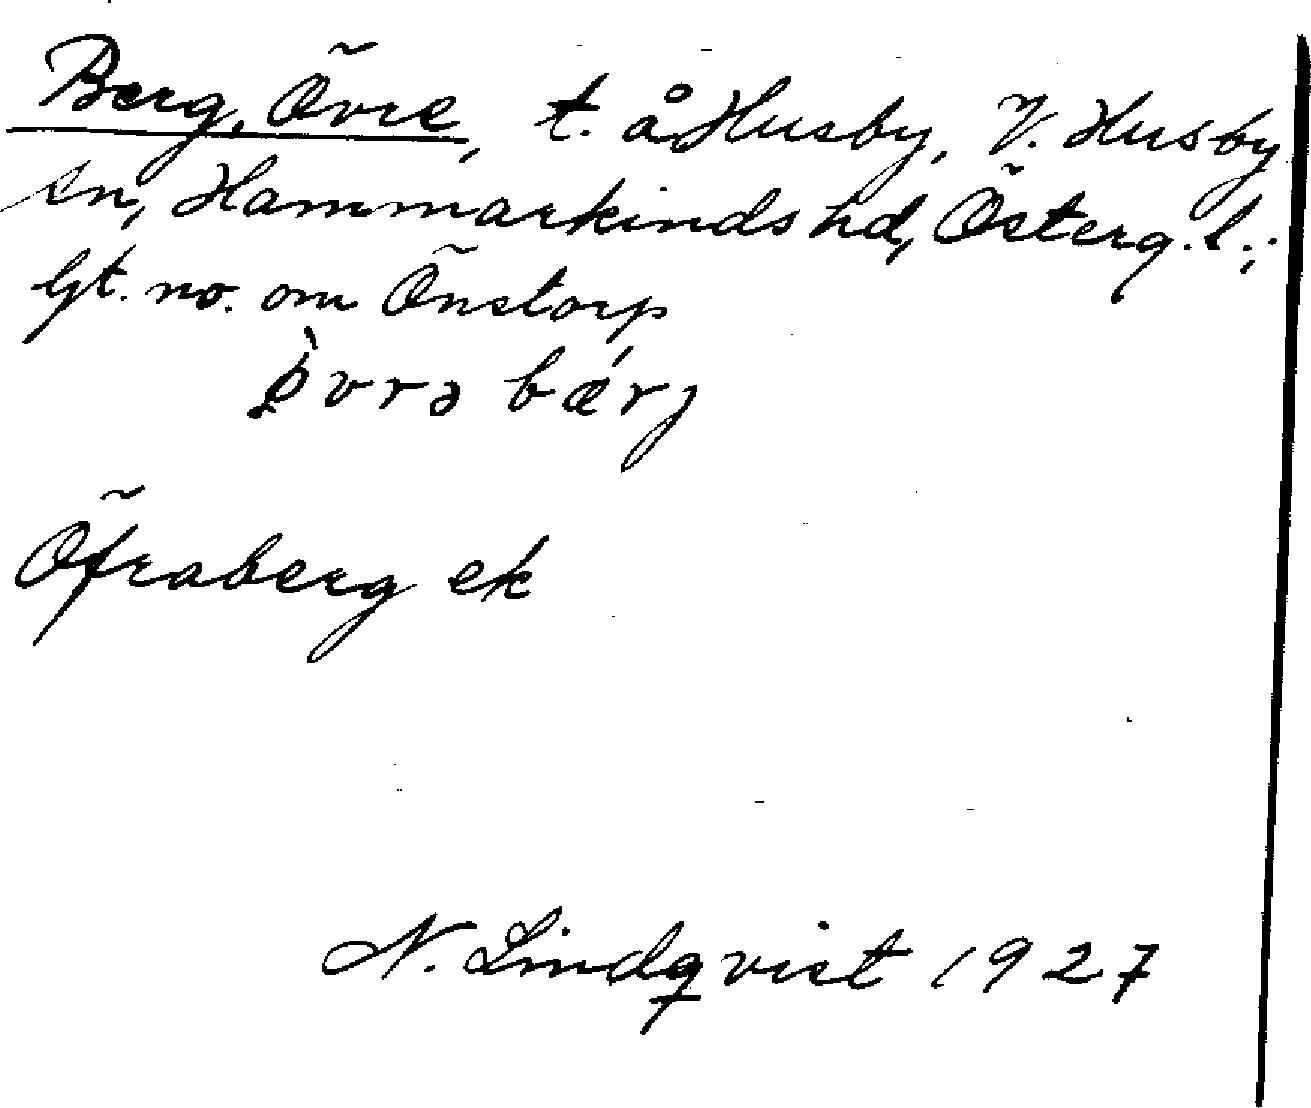 Berg, Övre, t. å Husby, V. Husby
sn, Hammarkinds hd, Österg. l.;
lgt. no. om Önstorp
ø̀vrə bǽrj
Öfraberg ek
N. Lindqvist 1927